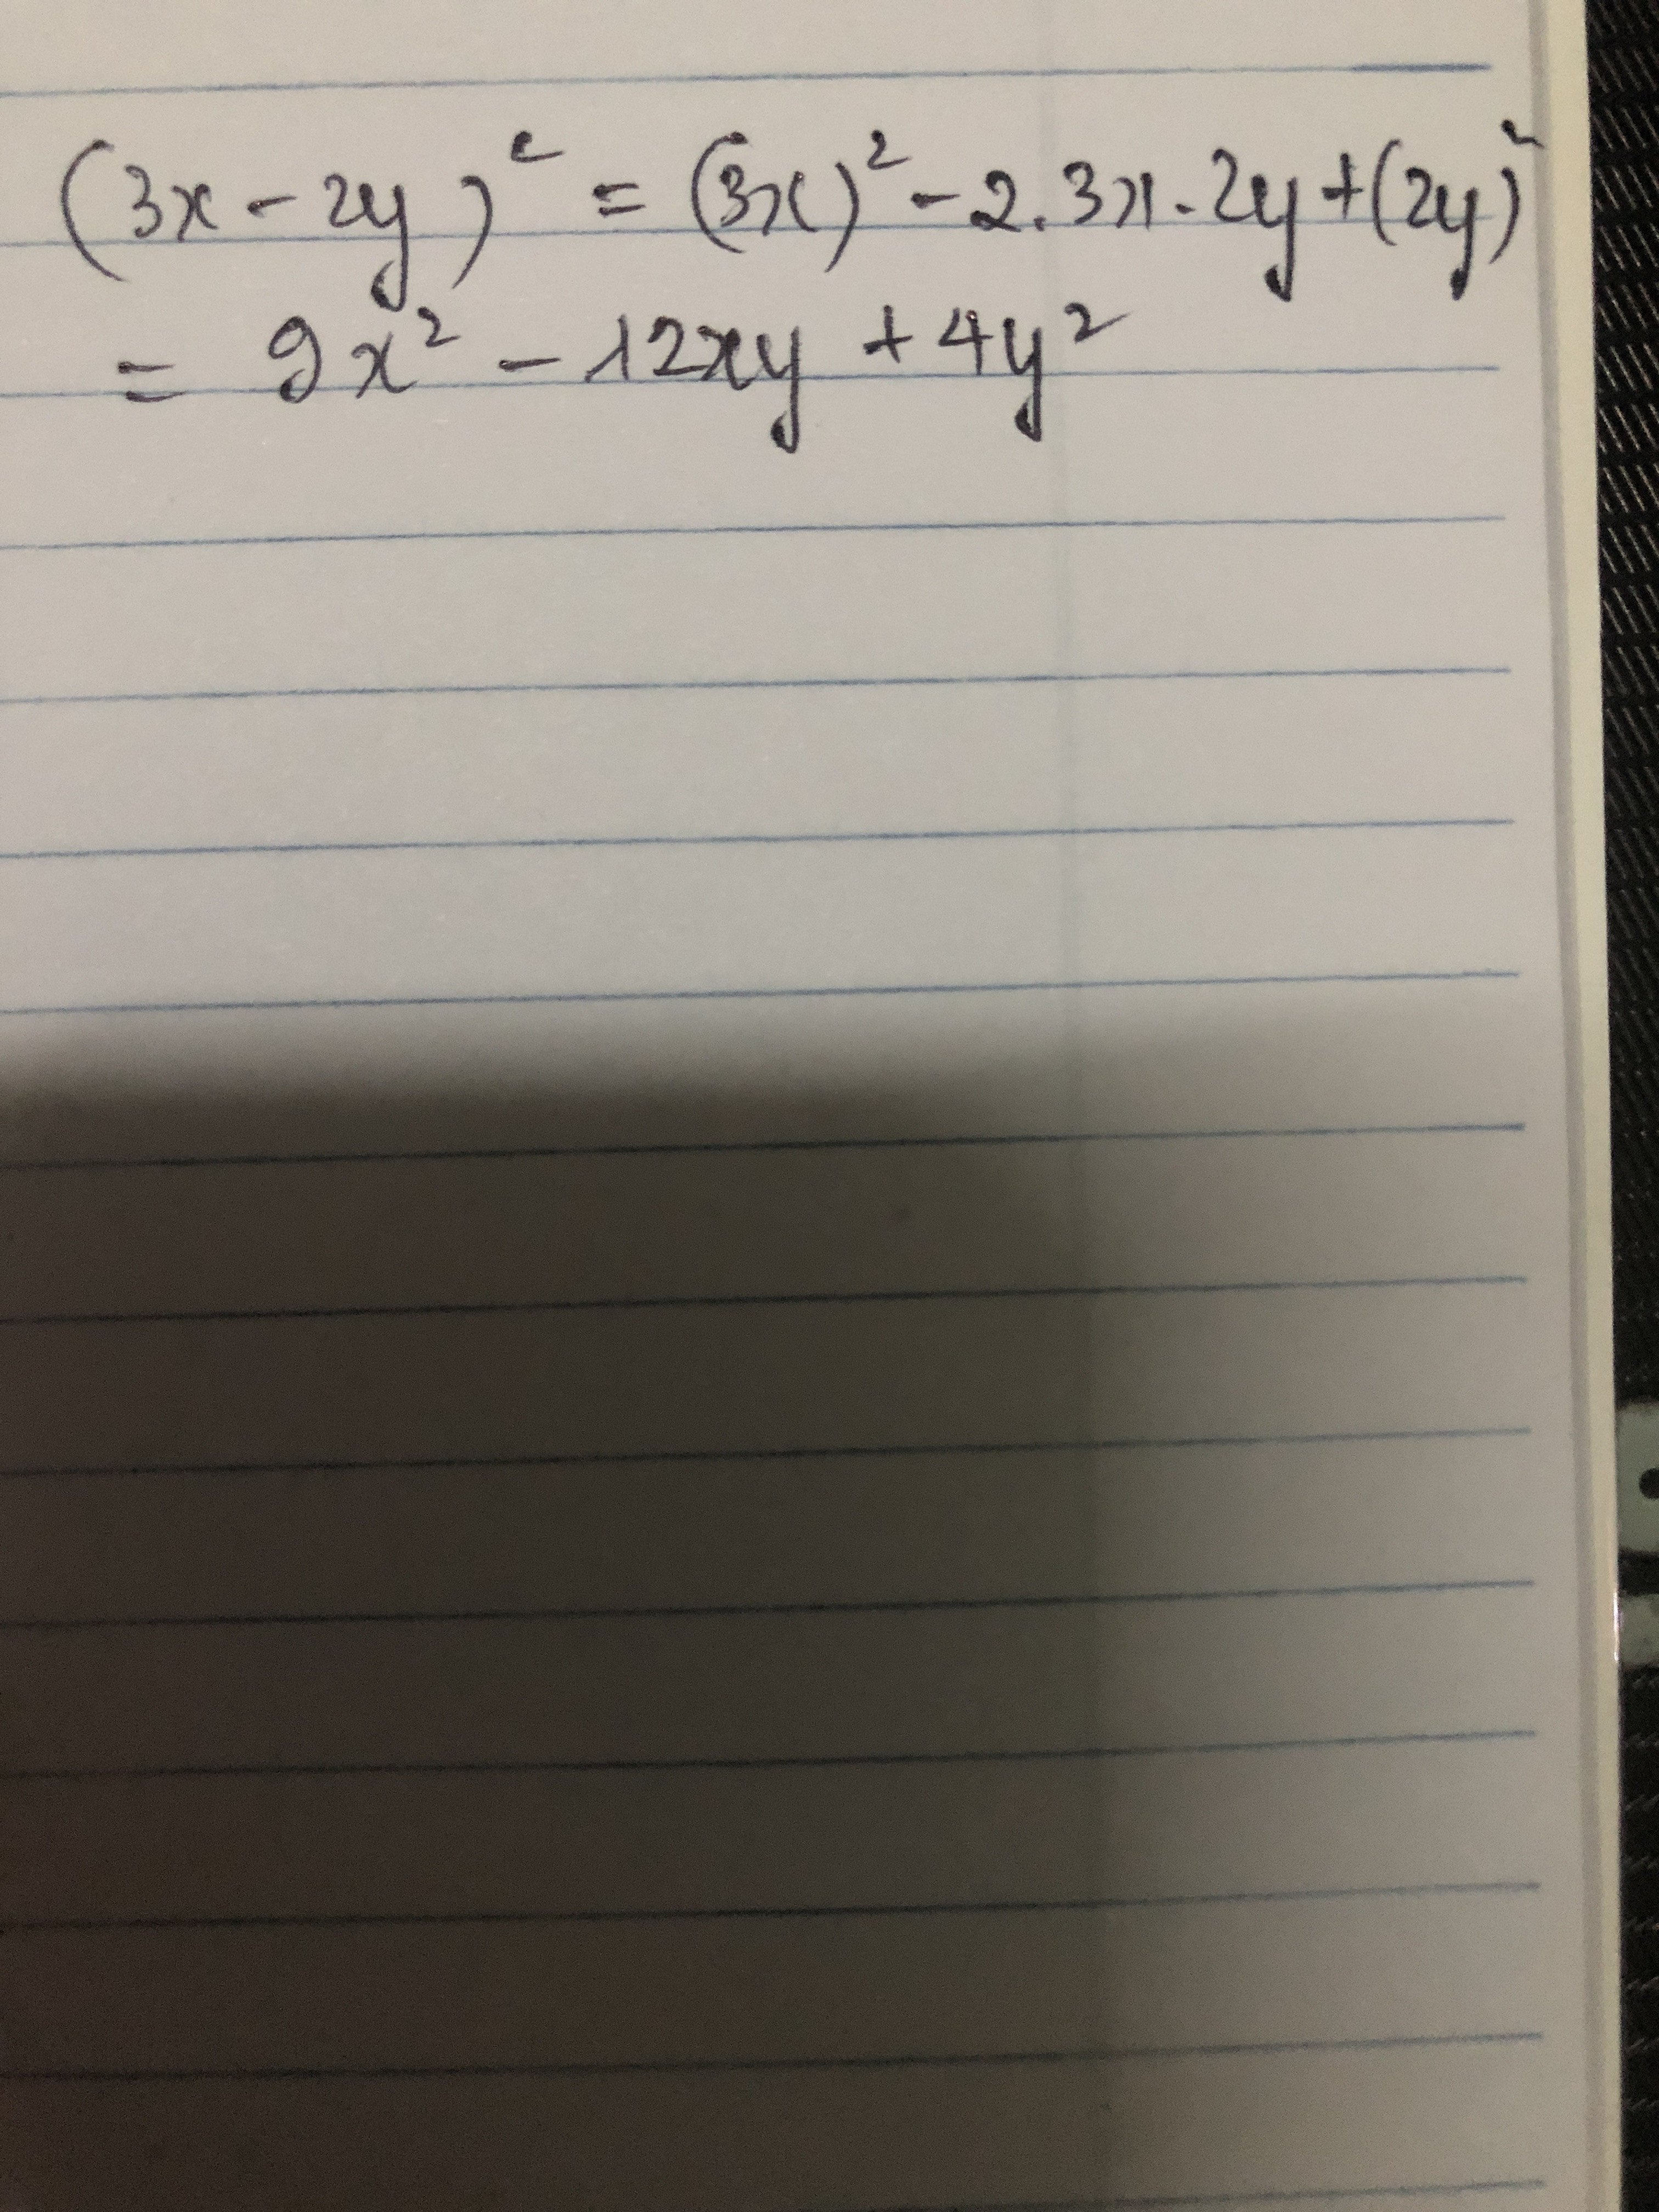 (3x - 2y)² = (3x)² - 2.3x.2y + (2y)²
= 9x² - 12xy + 4y²